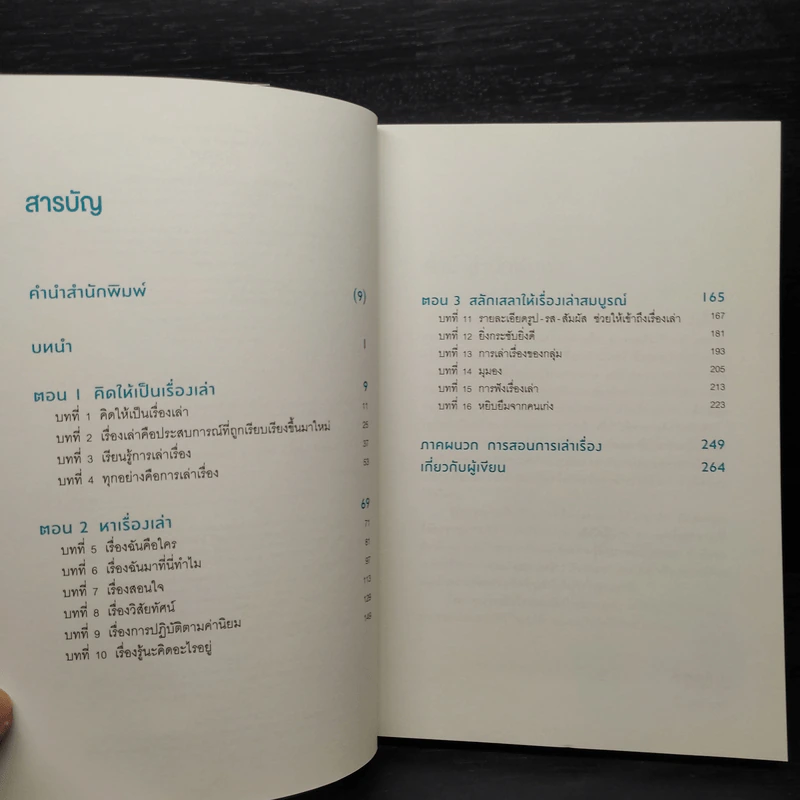 สารบัญ
คำนำสำนักพิมพ์ (9)
บทนำ 1
ตอน 1 คิดให้เป็นเรื่องเล่า 9
บทที่ 1 คิดให้เป็นเรื่องเล่า 11
บทที่ 2 เรื่องเล่าคือประสบการณ์ที่ถูกเรียบเรียงขึ้นมาใหม่ 25
บทที่ 3 เรียนรู้การเล่าเรื่อง 37
บทที่ 4 ทุกอย่างคือการเล่าเรื่อง 53
ตอน 2 หาเรื่องเล่า 69
บทที่ 5 เรื่องฉันคือใคร 71
บทที่ 6 เรื่องฉันมาที่นี่ทำไม 81
บทที่ 7 เรื่องสอนใจ 97
บทที่ 8 เรื่องวิสัยทัศน์ 113
บทที่ 9 เรื่องการปฏิบัติตามค่านิยม 129
บทที่ 10 เรื่องรู้นะคิดอะไรอยู่ 145
ตอน 3 สลักเสลาให้เรื่องเล่าสมบูรณ์ 165
บทที่ 11 รายละเอียดรูป-รส-สัมผัส ช่วยให้เข้าถึงเรื่องเล่า 167
บทที่ 12 ยิ่งกระชับยิ่งดี 181
บทที่ 13 การเล่าเรื่องของกลุ่ม 193
บทที่ 14 มุมมอง 205
บทที่ 15 การฟังเรื่องเล่า 213
บทที่ 16 หยิบยืมจากคนเก่ง 223
ภาคผนวก การสอนการเล่าเรื่อง 249
เกี่ยวกับผู้เขียน 264